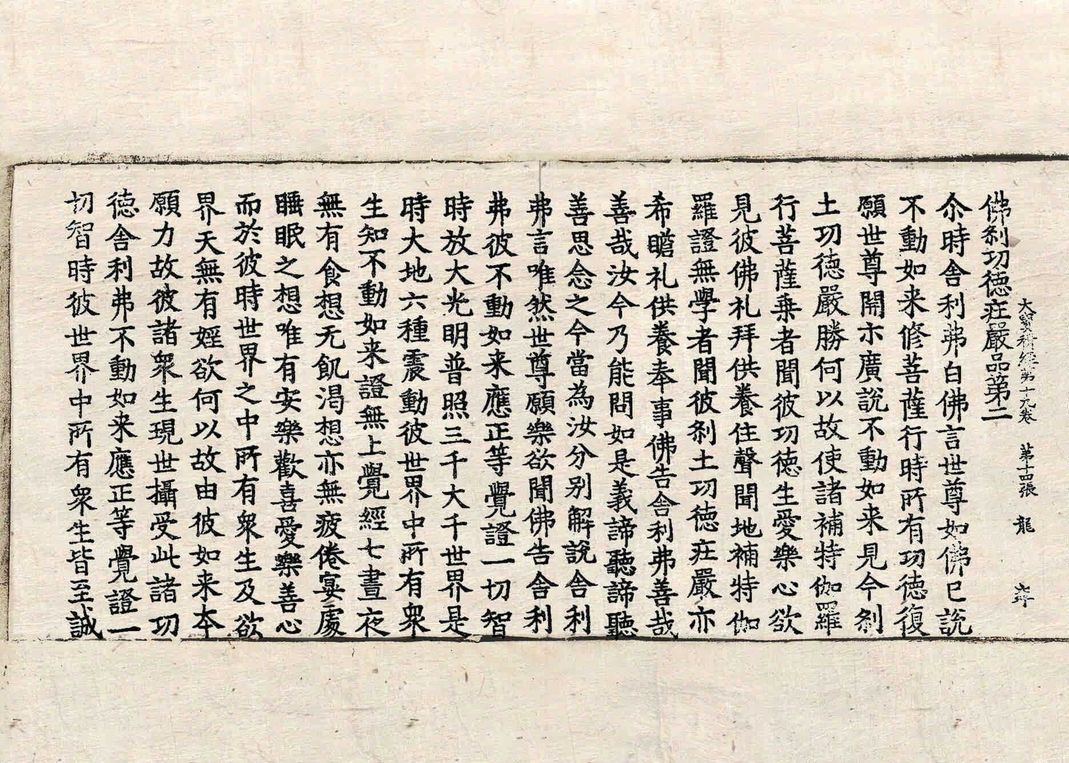 大寳積經第十九卷　第十四張　龍
佛刹功德莊嚴品第二
尒時舍利弗白佛言世尊如佛已說
不動如来修菩薩行時所有功德復
願世尊開示廣說不動如来見今刹
土功德嚴勝何以故使諸補特伽羅
行菩薩乗者聞彼功德生愛樂心欲
見彼佛礼拜供養住聲聞地補特伽
羅證無學者聞彼刹土功德莊嚴亦
希瞻礼供養奉事佛告舍利弗善哉
善哉汝今乃能問如是義諦聽諦聽
善思念之今當為汝分别解說舍利
弗言唯然世尊願樂欲聞佛告舍利
弗彼不動如来應正等覺證一切智
時放大光明普照三千大千世界是
時大地六種震動彼世界中所有衆
生知不動如来證無上覺經七晝夜
無有食想无飢渴想亦無疲倦宴處
睡眠之想唯有安樂歡喜愛樂善心
而於彼時世界之中所有衆生及欲
界天無有婬欲何以故由彼如来本
願力故彼諸衆生現世攝受此諸功
德舍利弗不動如来應正等覺證一
切智時彼世界中所有衆生皆至誠